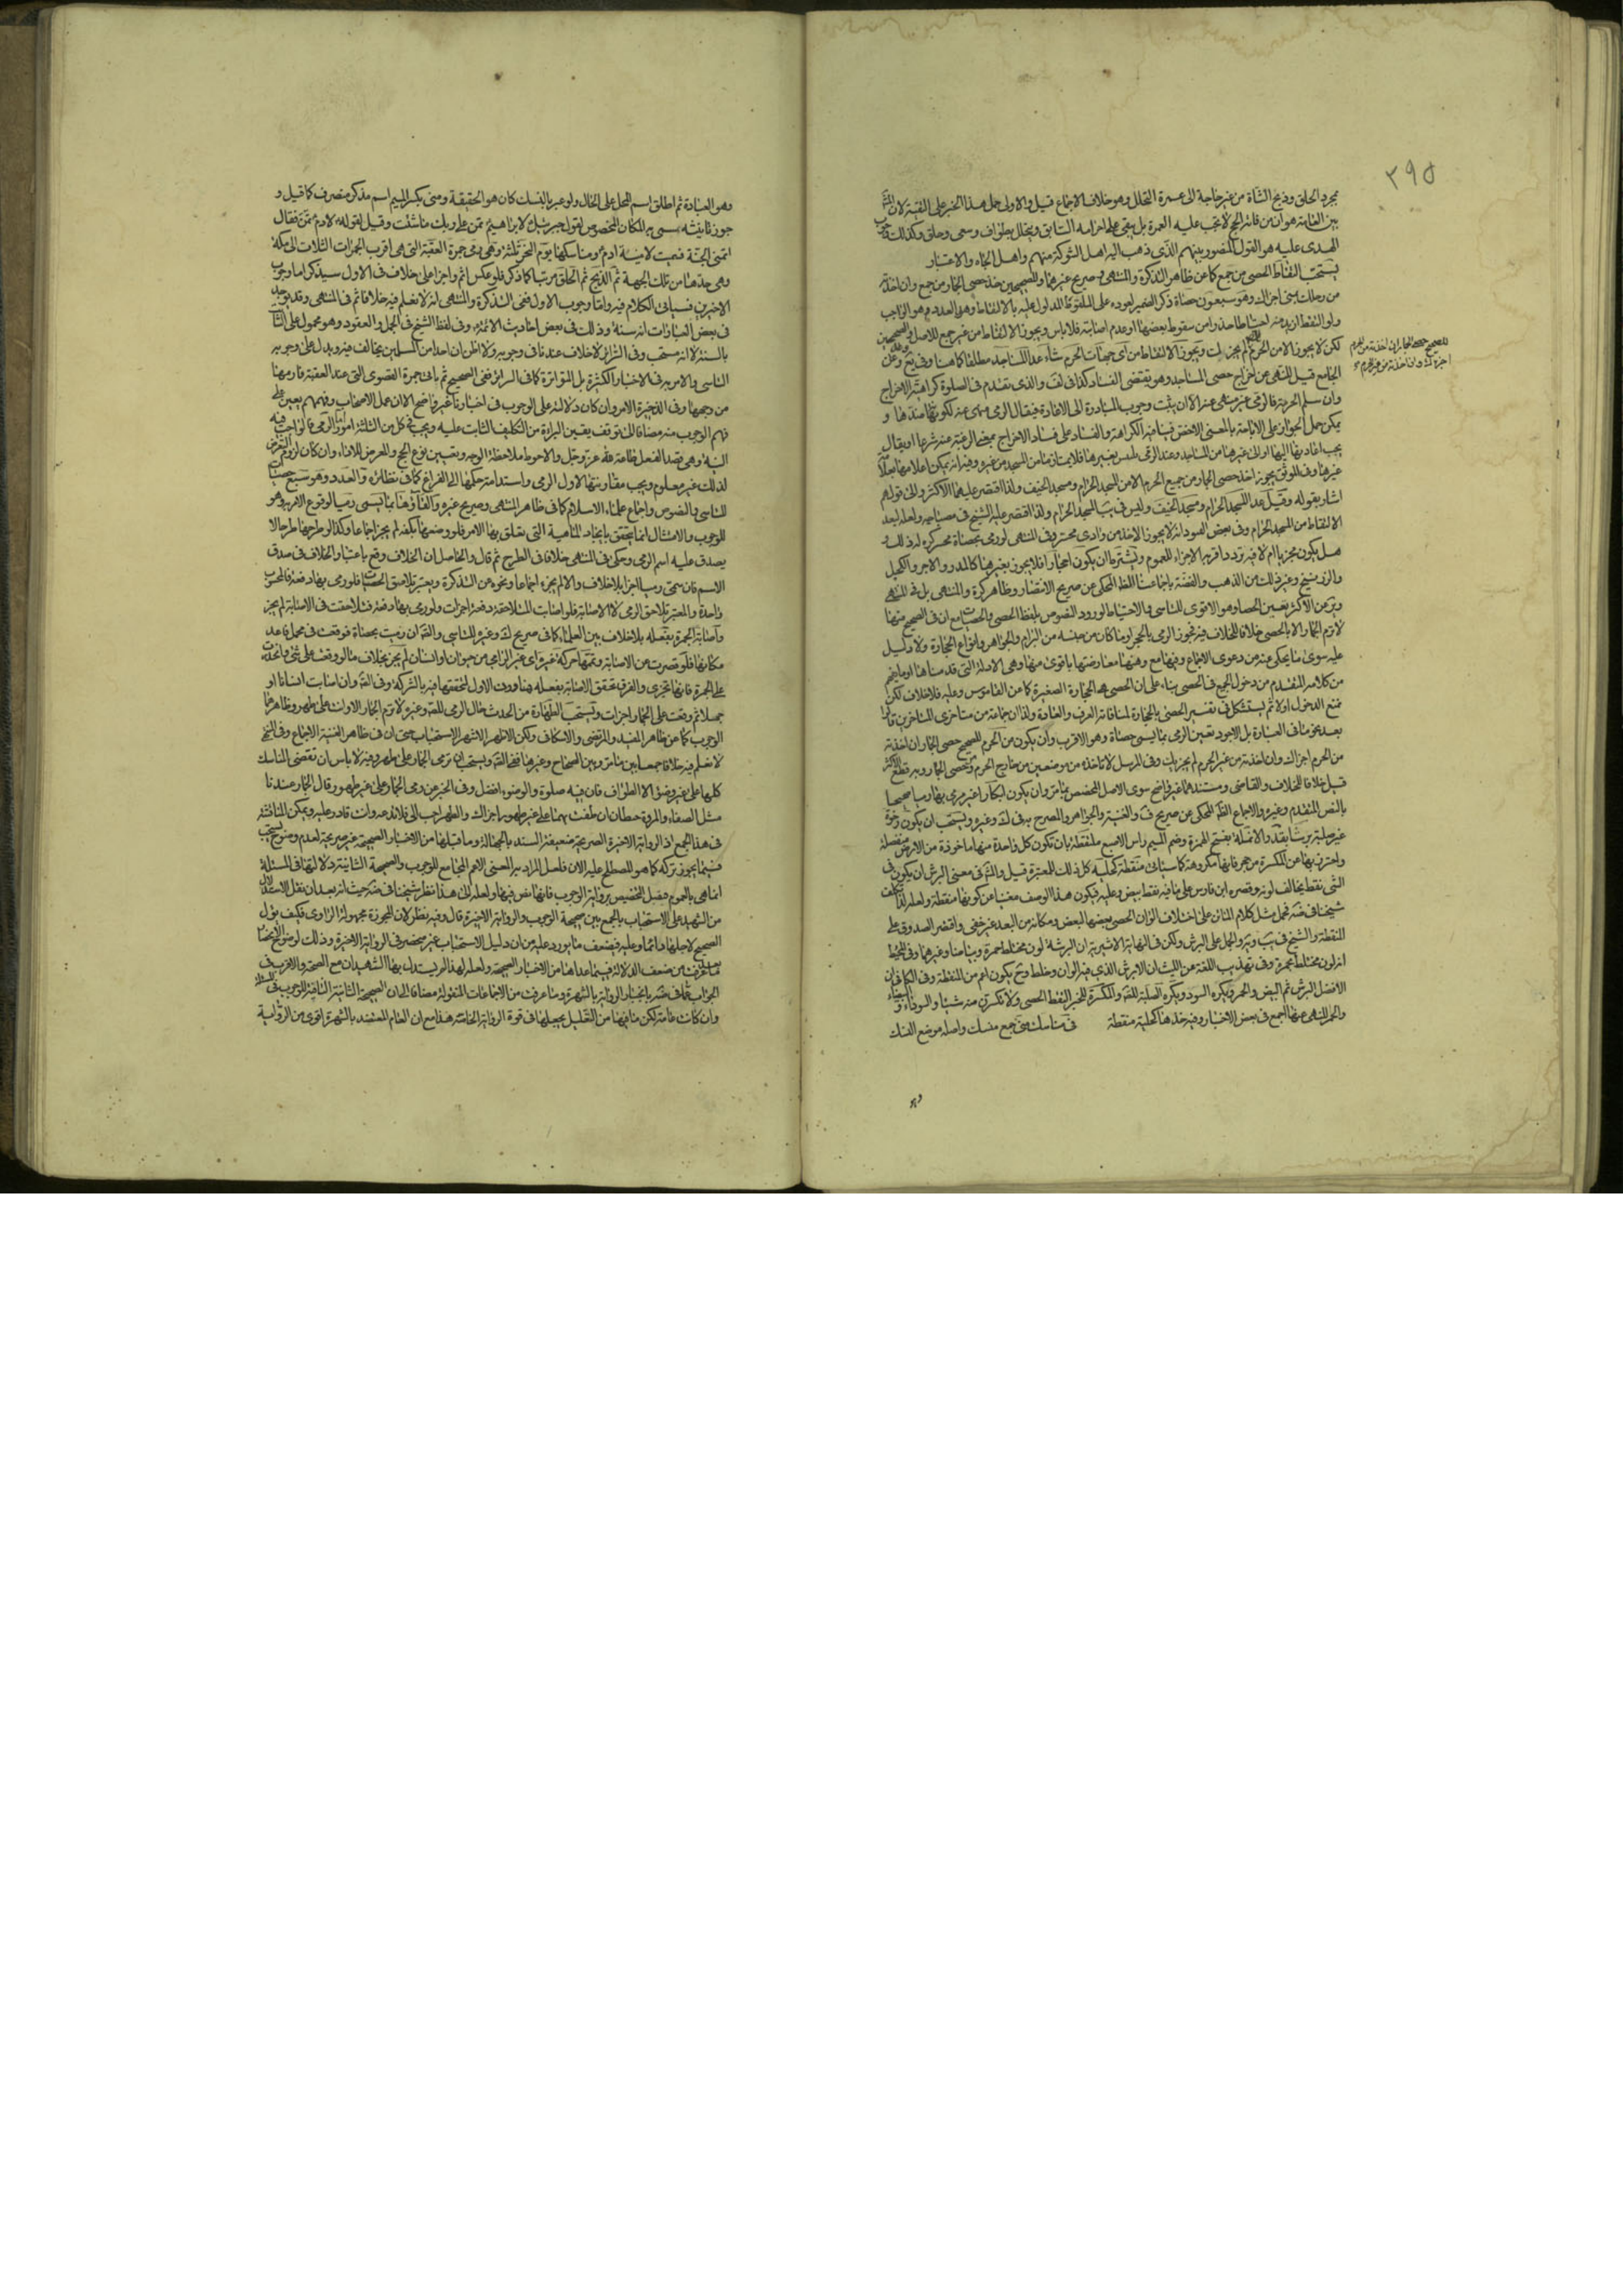 ٢٩٥
بمجرد الحلق وذبح الشاة من غير حاجة الى عمرة التحلل وهو خلاف الاجماع قيل والاولى حمل هذا الخبر على التقية لان
بين العامة هو ان من فاته الحج لا تجب عليه العمرة بل يبقى على احرامه السابق ويتحلل بطواف وسعى وحلق وكذلك
الهدى عليه هو القول المنصور بينهم الذى ذهب اليه اهل الشوكة منهم واهل الجاه والاعتبار
يستحب التقاط الحصى من جمع كما عن ظاهر التذكرة والمنتهى وصريح غيرهما وللصحيحين خذ حصى الجمار من جمع وان اخذته
من رحلك بمنى اجزاك وهو سبعون حصاة ذكر الضمير لعوده على الملقوط المدلول عليه بالالتقاط وهى العدد هو الواجب
ولو التقط ازيد منه احتياطا حذرا من سقوط بعضها او عدم اصابته فلا باس ويجوز الالتقاط من غير جمع للاصل والصحيحين
لكن لا يجوز الا من الحرم لم يجز لك ويجوز الالتقاط من اى جهات الحرم شاء عدا المساجد مطلقا كما هنا وفى يع وعن
للصحيح حصى الجمار ان اخذته من الحرم
اجزاك وان اخذته من غير الحرم
الجامع قيل للنهى عن اخراج حصى المساجد وهو يقتضى الفساد كذا فى لف والذى تقدم فى الصلوة كراهة الاخراج
وان سلم الحرمة فالرمى غير منهى عنه الا ان يثبت وجوب المبادرة الى الاعادة فيقال الرمى منهى عنه لكونه ضدها و
يمكن حمل الجواز على الاباحة بالمعنى الاخص فينافيه الكراهة والفساد على فساد الاخراج بمعنى الرغبة عنه شرعا او يقال
يجب اعادتها اليها او الى غيرها من المساجد وعند الرمى يلتبس بغيرها فلا يمتاز ما من المسجد من غيره وفيه انه يمكن اعلامها بعلامة
غيرها وفى الموثق يجوز اخذ حصى الجمار من جميع الحرم الا من المسجد الحرام ومسجد الخيف ولذا اقتصر عليهما الاكثر والى قولهم
اشار بقوله وقيل عدا المسجد الحرام ومسجد الخيف وليس فى يب المسجد الحرام ولذا اقتصر عليه الشيخ فى مصباحه ولعله لبعد
الالتقاط من المسجد الحرام وفى بعض القيود انه لا يجوز الاخذ من وادى محسر وفى المنتهى لو رمى بحصاة محسر كره له ذلك و
هل يكون مجزيا ام لا فيه تردد اقربه الاجزاء للعموم ويشترط ان يكون احجارا فلا يجوز بغيرها كالمدر والاجر والكحل
والزرنيخ وغير ذلك من الذهب والفضة باجماعنا الظاهر المحكى عن صريح الانتصار وظاهر كرة والمنتهى بل فى المنتهى
وعن الاكثر تعين الحصا وهو الاقوى للتاسى والاحتياط لورود النصوص بلفظ الحصى والحصيات مع ان فى الصحيح منها
لا ترم الجمار الا بالحصى خلافا للخلاف فيه فجوز الرمى بالحجر وما كان من جنسه من البرام والجواهر وانواع الحجارة ولا دليل
عليه سوى ما يحكى عنه من دعوى الاجماع وفيها مع وهنها معارضتها باقوى منها وهى الادلة التى قدمناها او ما يفهم
من كلامه المتقدم من دخول الجميع فى الحصى بناء على ان الحصى هى الحجارة الصغيرة كما عن القاموس وعليه فلا خلاف لكن
نمنع الدخول اولا ثم يستشكل فى تفسير الحصى بالحجارة لمنافاته العرف والعادة ولذا ان جماعة من متاخرى المتاخرين قالوا
بعد نحو ما فى العبارة بل الاجود تعين الرمى بما يسمى حصاة وهو الاقرب وان يكون من الحرم للصحيح حصى الجمار ان اخذته
من الحرم اجزاك وان اخذته من غير الحرم لم يجزيك وفى المرسل لا تاخذه من موضعين من خارج الحرم ومن حصى الجمار وبه قطع الاكثر
قيل خلافا للخلاف والقاضى ومستندهما غير واضح سوى الاصل المخصص بما مر وان يكون ابكارا اى غير مرمى بها رميا صحيحا
بالنص المتقدم وغيره والاجماع الظاهر المحكى عن صريح ف والغنية والجواهر والمصرح به فى لك وغيره ويستحب ان يكون رخوة
غير صلبة برشا بقدر الانملة بفتح الهمزة وضم الميم راس الاصبع ملتقطة بان تكون كل واحدة منها ماخوذة من الارض منفصلة
واحترز بها عن المكسرة من حجر فانها مكروهة كما سياتى منقطة كحلية كل ذلك للمعتبرة قيل والمشهور فى معنى البرش ان يكون فى
الشئ نقط يخالف لونه وقصره ابن فارس على ما فيه نقط بيض وعليه فيكون هذا الوصف مغنيا عن كونها منقطة ولعله لذا تكلف
شيخنا فى ضه فحمل مثل كلام الماتن على اختلاف الوان الحصى بعضها لبعض ومكانه من البعد غير خفى واقتصر الصدوق على
المنقطة والشيخ فى يب وية والجمل على البرش ولكن فى النهاية الاثيرية ان البرشة لون مختلط حمرة وبياضا وغيرهما وفى المحيط
انه لون مختلط بحمرة وفى تهذيب اللغة عن الليث ان الابرش الذى فيه الوان وخلط وح يكون اعم من المنقطة وفى الكافى ان
الافضل البرش ثم البيض والحمر ويكره السود ويكره الصلبة للفقه والمكسرة للخبر التقط الحصى ولا تكسرن منه شيئا والسوداء والبيضاء و
والحمر للنهى عنها الجمع فى بعض الاخبار وفيه خذها كحلية منقطة فى مناسك منى جمع منسك واصله موضع النسك
وهو
وهو العبادة ثم اطلق اسم المحل على الحال ولو عبر بالنسك كان هو الحقيقة ومنى بكسر الميم اسم مذكر منصرف كما قيل و
جوز تانيثه سمى به المكان المخصوص لقول جبرئيل لابراهيم تمن على ربك ما شئت وقيل لقوله لادم تمن فقال
اتمنى الجنة فسميت لامنية ادم ومناسكها يوم النحر ثلثة وهى رمى جمرة العقبة التى هى اقرب الجمرات الثلاث الى مكة
وهى حدها من تلك الجهة ثم الذبح ثم الحلق مرتبا كما ذكر فلو عكس اثم واجزا على خلاف فى الاول سيذكر اما وجوب
الاخيرين فسياتى الكلام فيه واما وجوب الاول فعن التذكرة والمنتهى انه لا نعلم فيه خلافا ثم فى المنتهى وقد يوجد
فى بعض العبارات انه سنة وذلك فى بعض احاديث الائمة وفى لفظ الشيخ فى الجمل والعقود وهو محمول على الثابت
بالسنة لا انه مستحب وفى السرائر لا خلاف عندنا فى وجوبه ولا اظن ان احدا من المسلمين يخالف فيه ويدل على وجوبه
التاسى والامر به فى الاخبار الكثيرة بل المتواترة كما فى السرائر ففى الصحيح ثم يات جمرة القصوى التى عند العقبة فارمها
من وجهها وفى الذخيرة الامر وان كان دلالته على الوجوب فى اخبارنا غير واضح الا ان عمل الاصحاب وفهمهم يعين على
فهم الوجوب منه مضافا الى توقف يقين البراءة من التكليف الثابت عليه ويجب فى كل من الثلثة امور اما الرمى فالواجب فيه
النية وهى قصد الفعل طاعة لله عز وجل والاحوط ملاحظة الوجه وتعيين نوع الحج والتعرض للاداء وان كان لزوم التعرض
لذلك غير معلوم ويجب مقارنتها لاول الرمى واستدامة حكمها الى الفراغ كما فى نظائره والعدد وهو سبع حصيات
للتاسى والنصوص واجماع علماء الاسلام كما فى ظاهر المنتهى وصريح غيره والقاؤها بما يسمى رميا لوقوع الامر به وهو
للوجوب والامتثال انما يتحقق بايجاد الماهية التى تعلق بها الامر فلو وضعها بكفه لم يجز اجماعا وكذا لو طرحها طرحا لا
يصدق عليه اسم الرمى وحكى فى المنتهى خلافا فى الطرح ثم قال والحاصل ان الخلاف وقع باعتبار الخلاف فى صدق
الاسم فان سمى رميا اجزا بلا خلاف والا لم يجزء اجماعا ونحوه عن التذكرة ويعتبر تلاحق الحصيات فلو رمى بها دفعة فالمحسوب
واحدة والمعتبر تلاحق الرمى لا الاصابة فلو اصابت المتلاحقة دفعة اجزات ولو رمى بها دفعة فتلاحقت فى الاصابة لم يجز
واصابة الجمرة بفعله بلا خلاف بين العلماء كما فى صريح لك وغيره للتاسى والفقه ان رميت بحصاة فوقعت فى محمل فاعد
مكانها فلو قصرت عن الاصابة وتممها حركة غيره اى غير الرامى من حيوان او انسان لم يجز بخلاف ما لو وقعت على شئ وانحدرت
على الجمرة فانها تجزى والفرق تحقق الاصابة بفعله هنا دون الاول لتحققها فيه بالشركة وفى الفقه وان اصابت انسانا او
جملا ثم وقعت على الجمار اجزات ويستحب الطهارة من الحدث حال الرمى للفقه وغيره لا ترم الجمار الا وانت على طهر وظاهرهما
الوجوب كما عن ظاهر المفيد والمرتضى والاسكافى ولكن الاظهر الاشهر الاستحباب حتى ان فى ظاهر الغنية الاجماع وفى المنتهى
لا نعلم فيه خلافا جمعا بين ما مر وبين الصحاح وغيرها ففى الفقه ويستحب ان ترمى الجمار على طهر وفيه لا باس ان تقضى المناسك
كلها على غير وضوء الا الطواف فان فيه صلوة والوضوء افضل وفى الخبر عن رمى الجمار على غير طهور قال الجمار عندنا
مثل الصفا والمروة حيطان ان طفت بهما على غير طهور اجزاك والطهر احب الى فلا تدعه وانت قادر عليه ويمكن المناقشة
فى هذا الجمع اذ الرواية الاخيرة الصريحة ضعيفة السند بالجهالة وما قبلها من الاخبار الصحيحة غير صريحة لعدم وضوح يستحب
فيما يجوز تركه كما هو المصطلح عليه الان فلعل المراد به المعنى الاعم المجامع للوجوب والصحيحة الثانية دلالتها فى المسئلة
انما هى بالعموم فيقبل التخصيص برواية الوجوب فانها نص فيها ولعله الى هذا نظر شيخنا فى ضه حيث انه بعد ان نقل الاستدلال
من الشهيد على الاستحباب بالجمع بين صحيحة الوجوب والرواية الاخيرة قال وفيه نظر لان المجوزة مجهولة الراوى فكيف يؤل
الصحيح لاجلها دائما وعليه فيضعف ما يورد عليه من ان دليل الاستحباب غير منحصر فى الرواية الاخيرة وذلك لوضوح الانحصار
بعد ما عرفت من ضعف الدلالة فيما عداها من الاخبار الصحيحة ولعله لهذا لم يستدل بها الشهيدان مع الصحة والاقرب فى
الجواب عما فى ضه بانجبار الرواية بالشهرة وما عرفت من الاجماعات المنقولة مضافا الى ان الصحيحة الثانية النافية للوجوب فى المسئلة
وان كانت عامة لكن ما فيها من التعليل يجعلها فى قوة الرواية الخاصة هذا مع ان العام المعتضد بالشهرة اقوى من الرواية